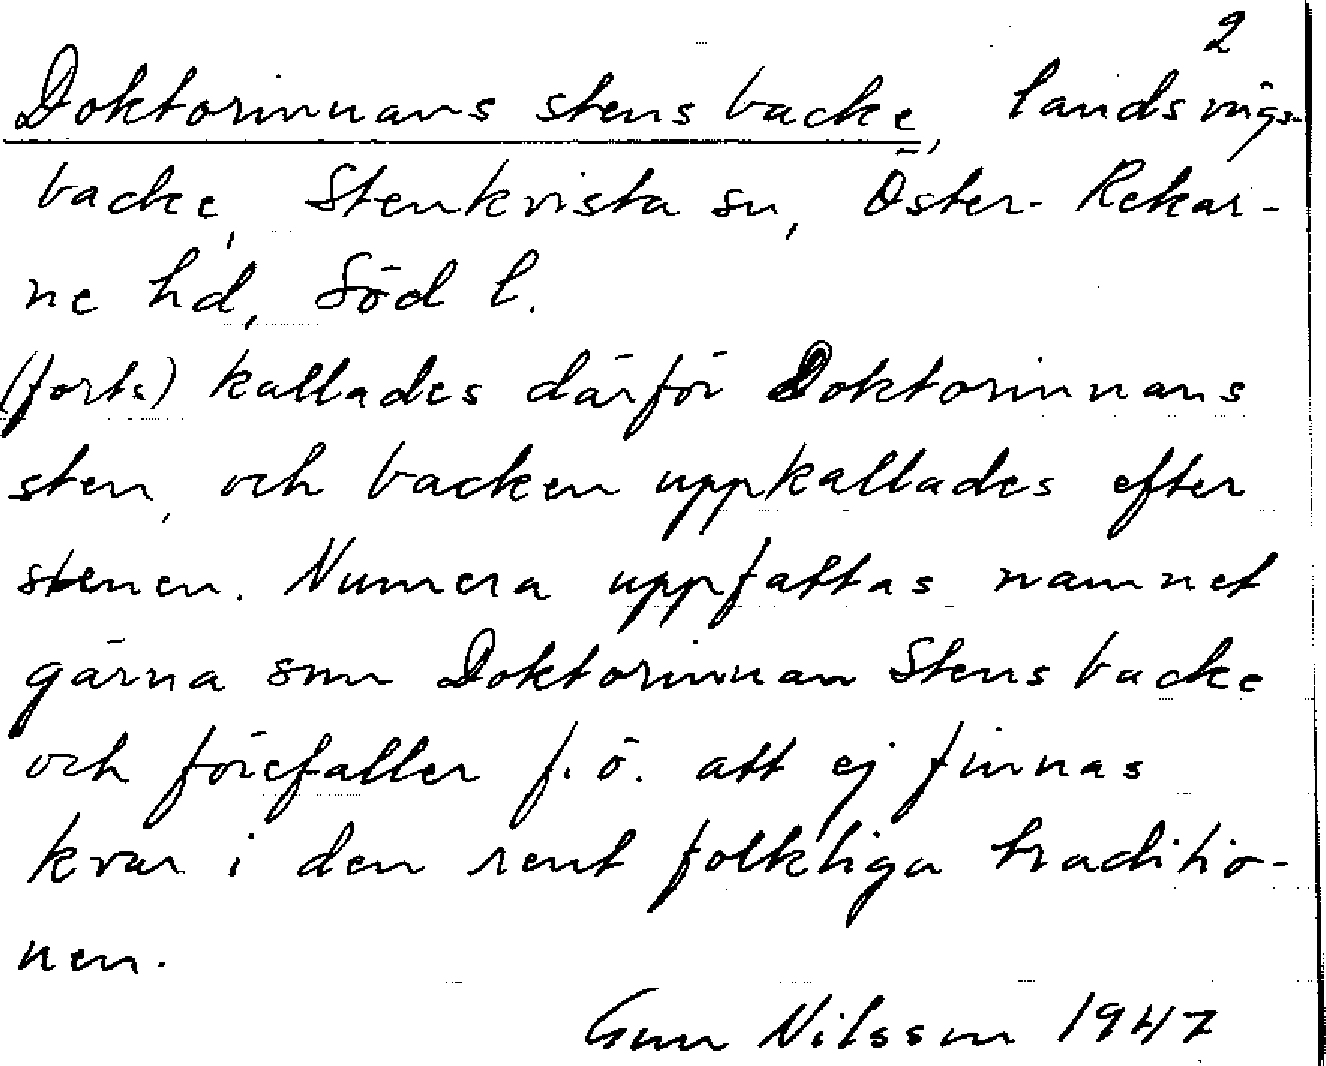 2
Doktorinnans stens backe, landsvägs-
backe, Stenkvista sn, Öster-Rekar-
ne hd, Söd l.
(forts) kallades därför Doktorinnans
sten, och backen uppkallades efter
stenen. Numera uppfattas namnet
gärna som Doktorinnan Stens backe
och förefaller f.ö. att ej finnas
kvar i den rent folkliga traditio-
nen.
Gun Nilsson 1947